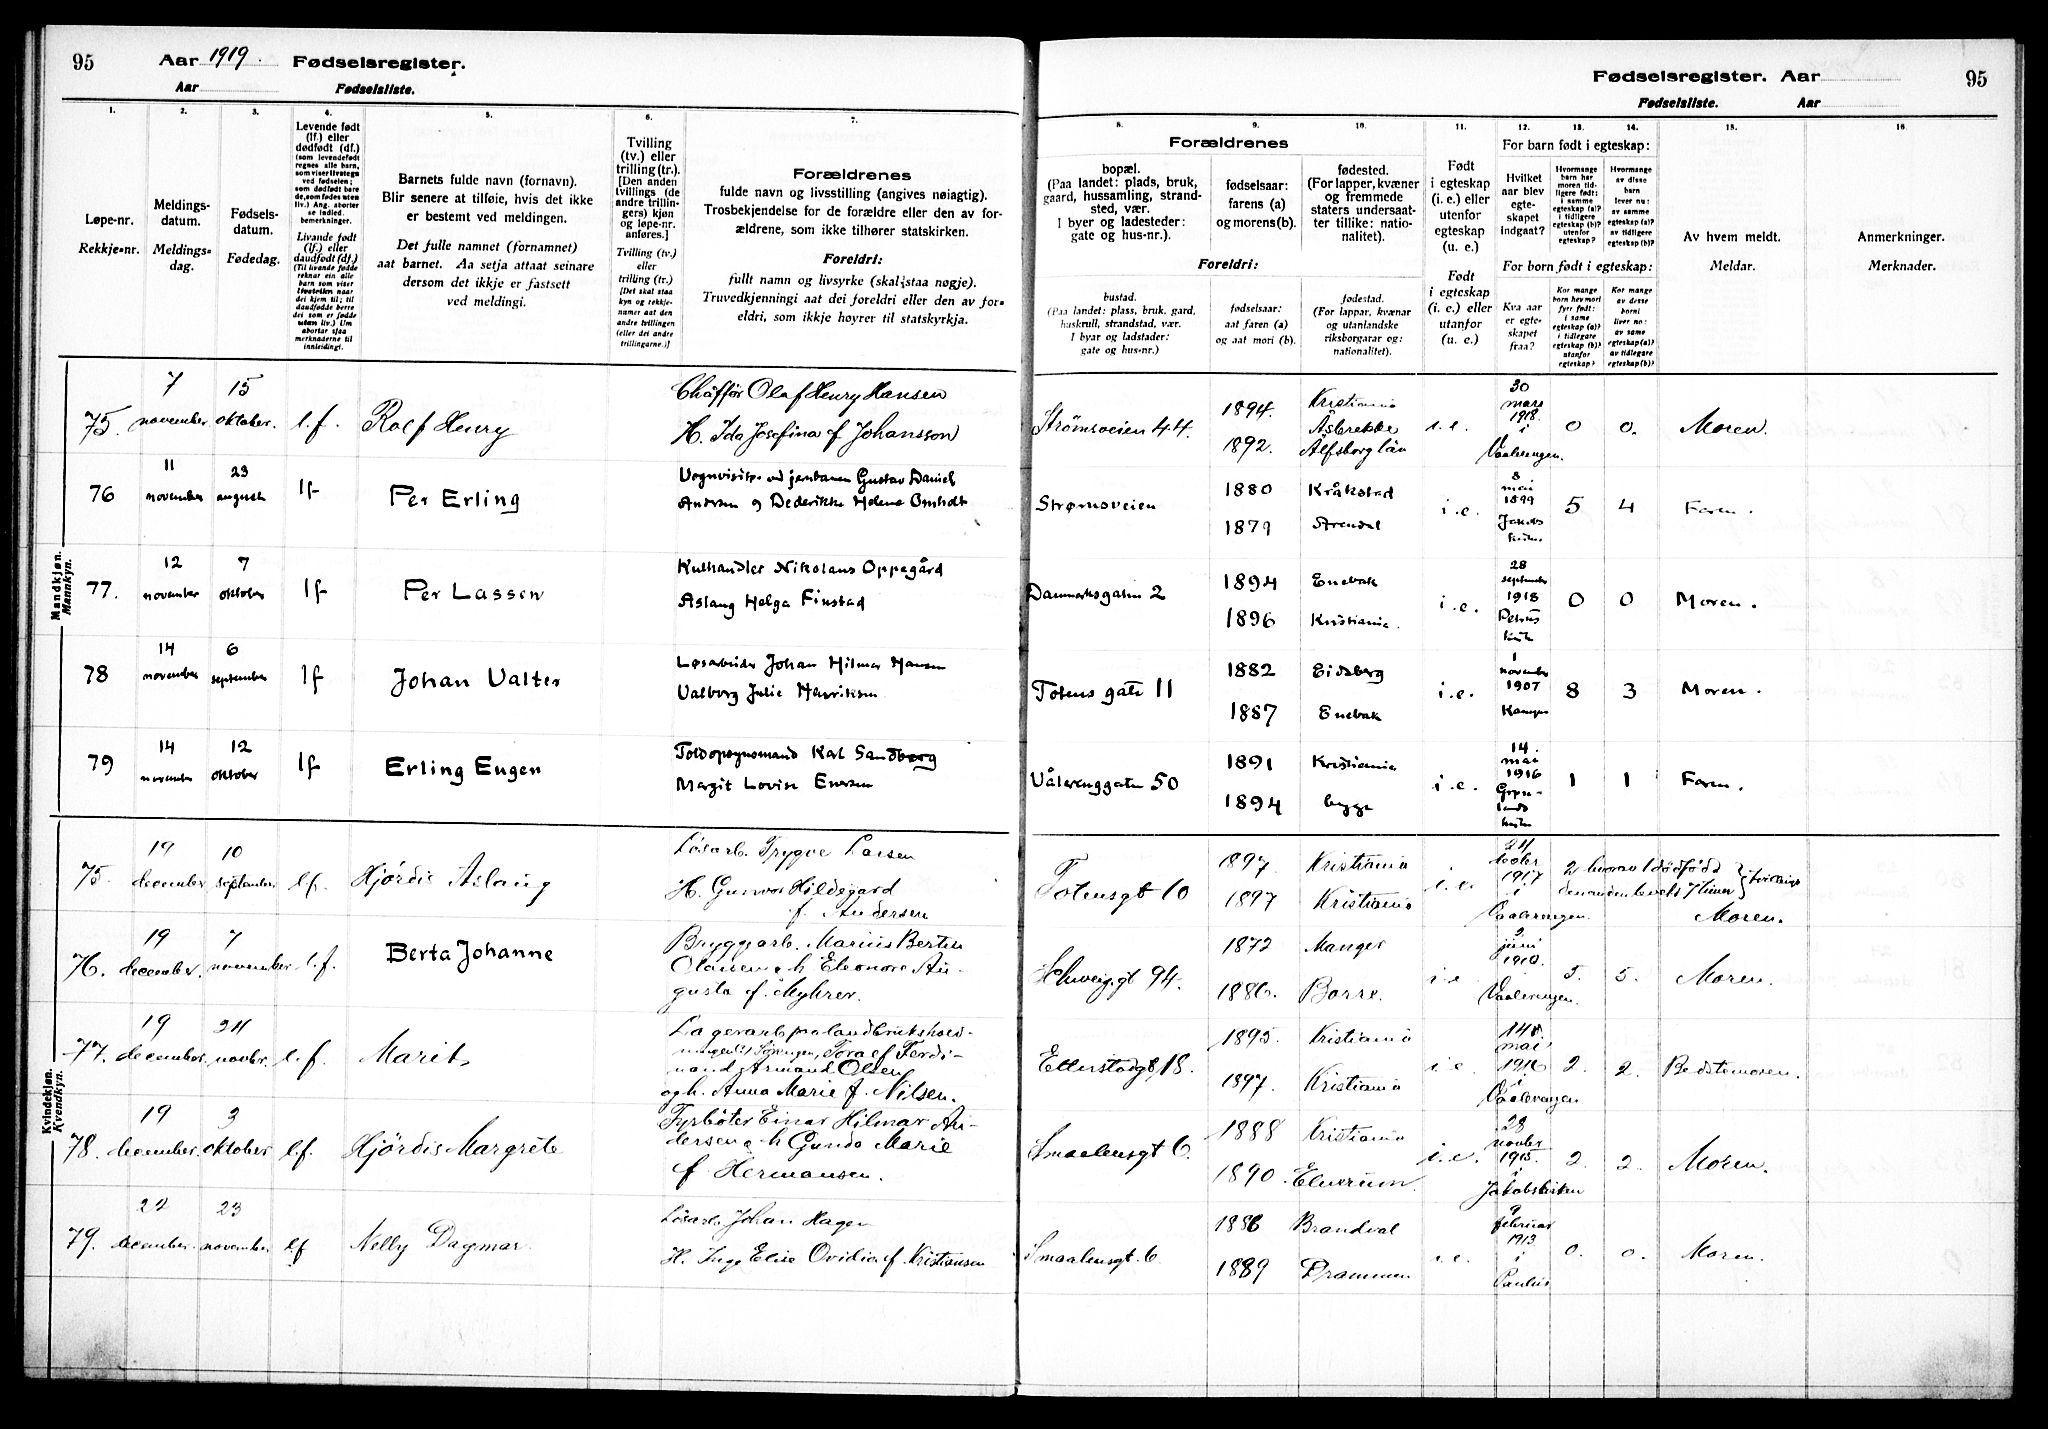 95
Aar 1919. Fødselsregister.
Aar Fødselsliste.
Fødselsregister. Aar
95
Fødselsliste. Aar
1. 2. 3. 4. 5. 6. 7.
Løpe-nr.
Rekkje-nr.
Meldings-
datum.
Meldings-
dag.
Fødsels-
datum.
Fødedag.
Levende født
(lf.) eller
dødfødt (df.)
(som levendefødt
regnes alle barn,
som viser livstegn
ved fødselen;
som dødfødt bare
de, som fødes uten
liv.) Ang. aborter
se indled.
bemerkninger.
Livande født
(lf.) eller
daudfødt (df.)
(Til livande fødde
reknar ein alle
barn som viser
livsteikn naar
dei kjem til; til
daudfødde berre
dei som er fødde
utan liv.) Um
abortar sjaa
merknaderne til
innleidingi.
Barnets fulde navn (fornavn).
Blir senere at tilføie, hvis det ikke
er bestemt ved meldingen.
Det fulle namnet (fornamnet)
aat barnet. Aa setja attaat seinare
dersom det ikkje er fastsett
ved meldingi.
Tvilling
(tv.) eller
trilling (tr.).
[Den anden
tvillings (de
andre trillin-
gers) kjøn
og løpe-nr.
anføres.]
Tvilling (tv.)
eller
trilling (tr.)
[Det skal staa
kyn og rekkje-
numer aat den
andre tvillingen
(eller dei andre
trillingarne.)]
Forældrenes
fulde navn og livsstilling (angives nøiagtig).
Trosbekjendelse for de forældre eller den av for-
ældrene, som ikke tilhører statskirken.
Foreldri:
fullt namn og livsyrke (skal staa nøgje).
Truvedkjenningi aat dei foreldri eller den av for-
eldri, som ikkje høyrer til statskyrkja.
8. 9. 10. 11. 12. 13. 14. 15. 16.
Forældrenes
bopæl.
(Paa landet: plads, bruk,
gaard, hussamling, strand-
sted, vær.
I byer og ladesteder:
gate og hus-nr.).
fødselsaar:
farens (a)
og morens (b).
fødested.
(For lapper, kvæner
og fremmede
staters undersaat-
ter tillike: natio-
nalitet).
Foreldri:
bustad.
(Paa landet: plass, bruk, gard,
huskrull, strandstad, vær.
I byar og ladstader:
gate og hus-nr.)
fødselsaar:
aat faren (a)
og aat mori (b).
fødestad.
(For lappar, kvænar
og utanlandske
riksborgarar og:
nationalitet).
Født
i egteskap
(i. e.) eller
utenfor
egteskap
(u. e.)
Født
i egteskap
(i. e.) eller
utanfor
(u. e.)
For barn født i egteskap:
Hvilket
aar blev
egte-
skapet
indgaat?
Hvormange
barn har
moren tid-
ligere født:
i samme
egteskap (a)?
i tidligere
egteskap (b)?
utenfor
egteskap?
Hvormange
av disse
barn
lever nu:
av samme
egteskap (a)?
av tidligere
egteskap (b)?
For born født i egteskap:
Kva aar
er egte-
skapet
fraa?
Kor mange
born hev mori
fyrr født:
i same
egteskap (a)?
i tidlegare
egteskap (b)?
utanfor
egteskap?
Kor mange
av desse
borni
liver no:
av same
egteskap (a)?
av tidlegare
egteskap (b)?
Av hvem meldt.
Meldar.
Anmerkninger.
Merknader.
Mandkjøn.
Mannkyn.
75. 7 november 15 oktober. l.f. Rolf Henry
Chauffør Olaf Henry Hansen
H. Ida Josefina f Johansson
Strømsveien 44. 1894. Kristiania
1892. Älfsborg län
i.e. 30 mars 1918. i Vaalerengen. 0 0. Moren.
76 11 november 23 august lf Per Erling
Vognvisit. ved jernbanen Gustav Daniel
Andersen og Dederikke Helene Omholt
Strømsveien 1880 Kråkstad
1879 Arendal
i.e. 8 mai 1899 Jakobs kirke. 5 4 Faren.
77. 12 november 7 oktober lf Per Lassen
Kulhandler Nikolaus Oppegård
Aslaug Helga Finstad
Danmarksgaten 2 1894 Enebak
1896 Kristiania.
i.e. 28 september 1918 Petrus kirke 0 0 Moren.
78 14 november 6 september lf Johan Valter
Løsarbeider Johan Hilmar Hansen
Valborg Julie Henriksen
Totens gate 11 1882 Eidsberg
1887 Enebak
i.e. 1 november 1907 Kampen 8 3 Moren.
79 14 november 12 oktober lf Erling Eugen
Toldopsynsmand Karl Sandberg
Margit Lovise Enersen
Vålerenggaten 50 1891 Kristiania
1894 bygge
i.e. 14. mai 1916 Grøn-lands kirke 1 1 Faren.
Kvindekjøn.
Kvendkyn.
75. 19 december 10 september l.f. Hjørdis Aslaug
Løsarb. Trygve Larsen
H. Gunvor Hildegard
f. Andersen
Totensgt 10 1897. Kristiania
1897 Kristiania
i.e. 1917 i Vaalerengen. 2 hvorav 1 dødfødt
den anden levet 7 timer } tvillinger
Moren.
76. 19 december. 7 november l.f. Berta Johanne
Bryggearb. Marius Bertin
Olausen & h Eleonore Au-
gusta f. Myhrer.
Schweig.gt 94. 1872 Manger
1886. Borre.
i.e 2. juni 1910. Vaalerengen. 5. 5. Moren.
77. 19 december. 24 novbr. l.f. Marit
Lagerarb paa landbrukshold-
ningen Toralf Ferdi-
nand Armand Olsen
og h. Anna Marie f. Nilsen.
Etterstadgt 18. 1895. Kristiania
1897. Kristiania
i.e. 14 mai 1916 i Vaalerengen 2. 2. Bedstemoren.
78. 19 december. 3 oktober l.f. Hjørdis Margrete
Fyrbøter Einar Hilmar An-
dersen & h Gunda Marie
f Hermansen.
Smaalensgt 6. 1888 Kristiania
1890. Elverum.
i.e. 28 novbr 1915. i Jakobskirken 2. 2. Moren.
79. 22 december. 23 november l.f Nelly Dagmar.
Løsarb. Johan Hagen
H. Inga Elise Ovidia f. Kristiansen
Smaalensgt. 6 1886 Brandval
1889 Drammen
i.e. 9 februar 1913 i Paulus 0. 0. Moren.